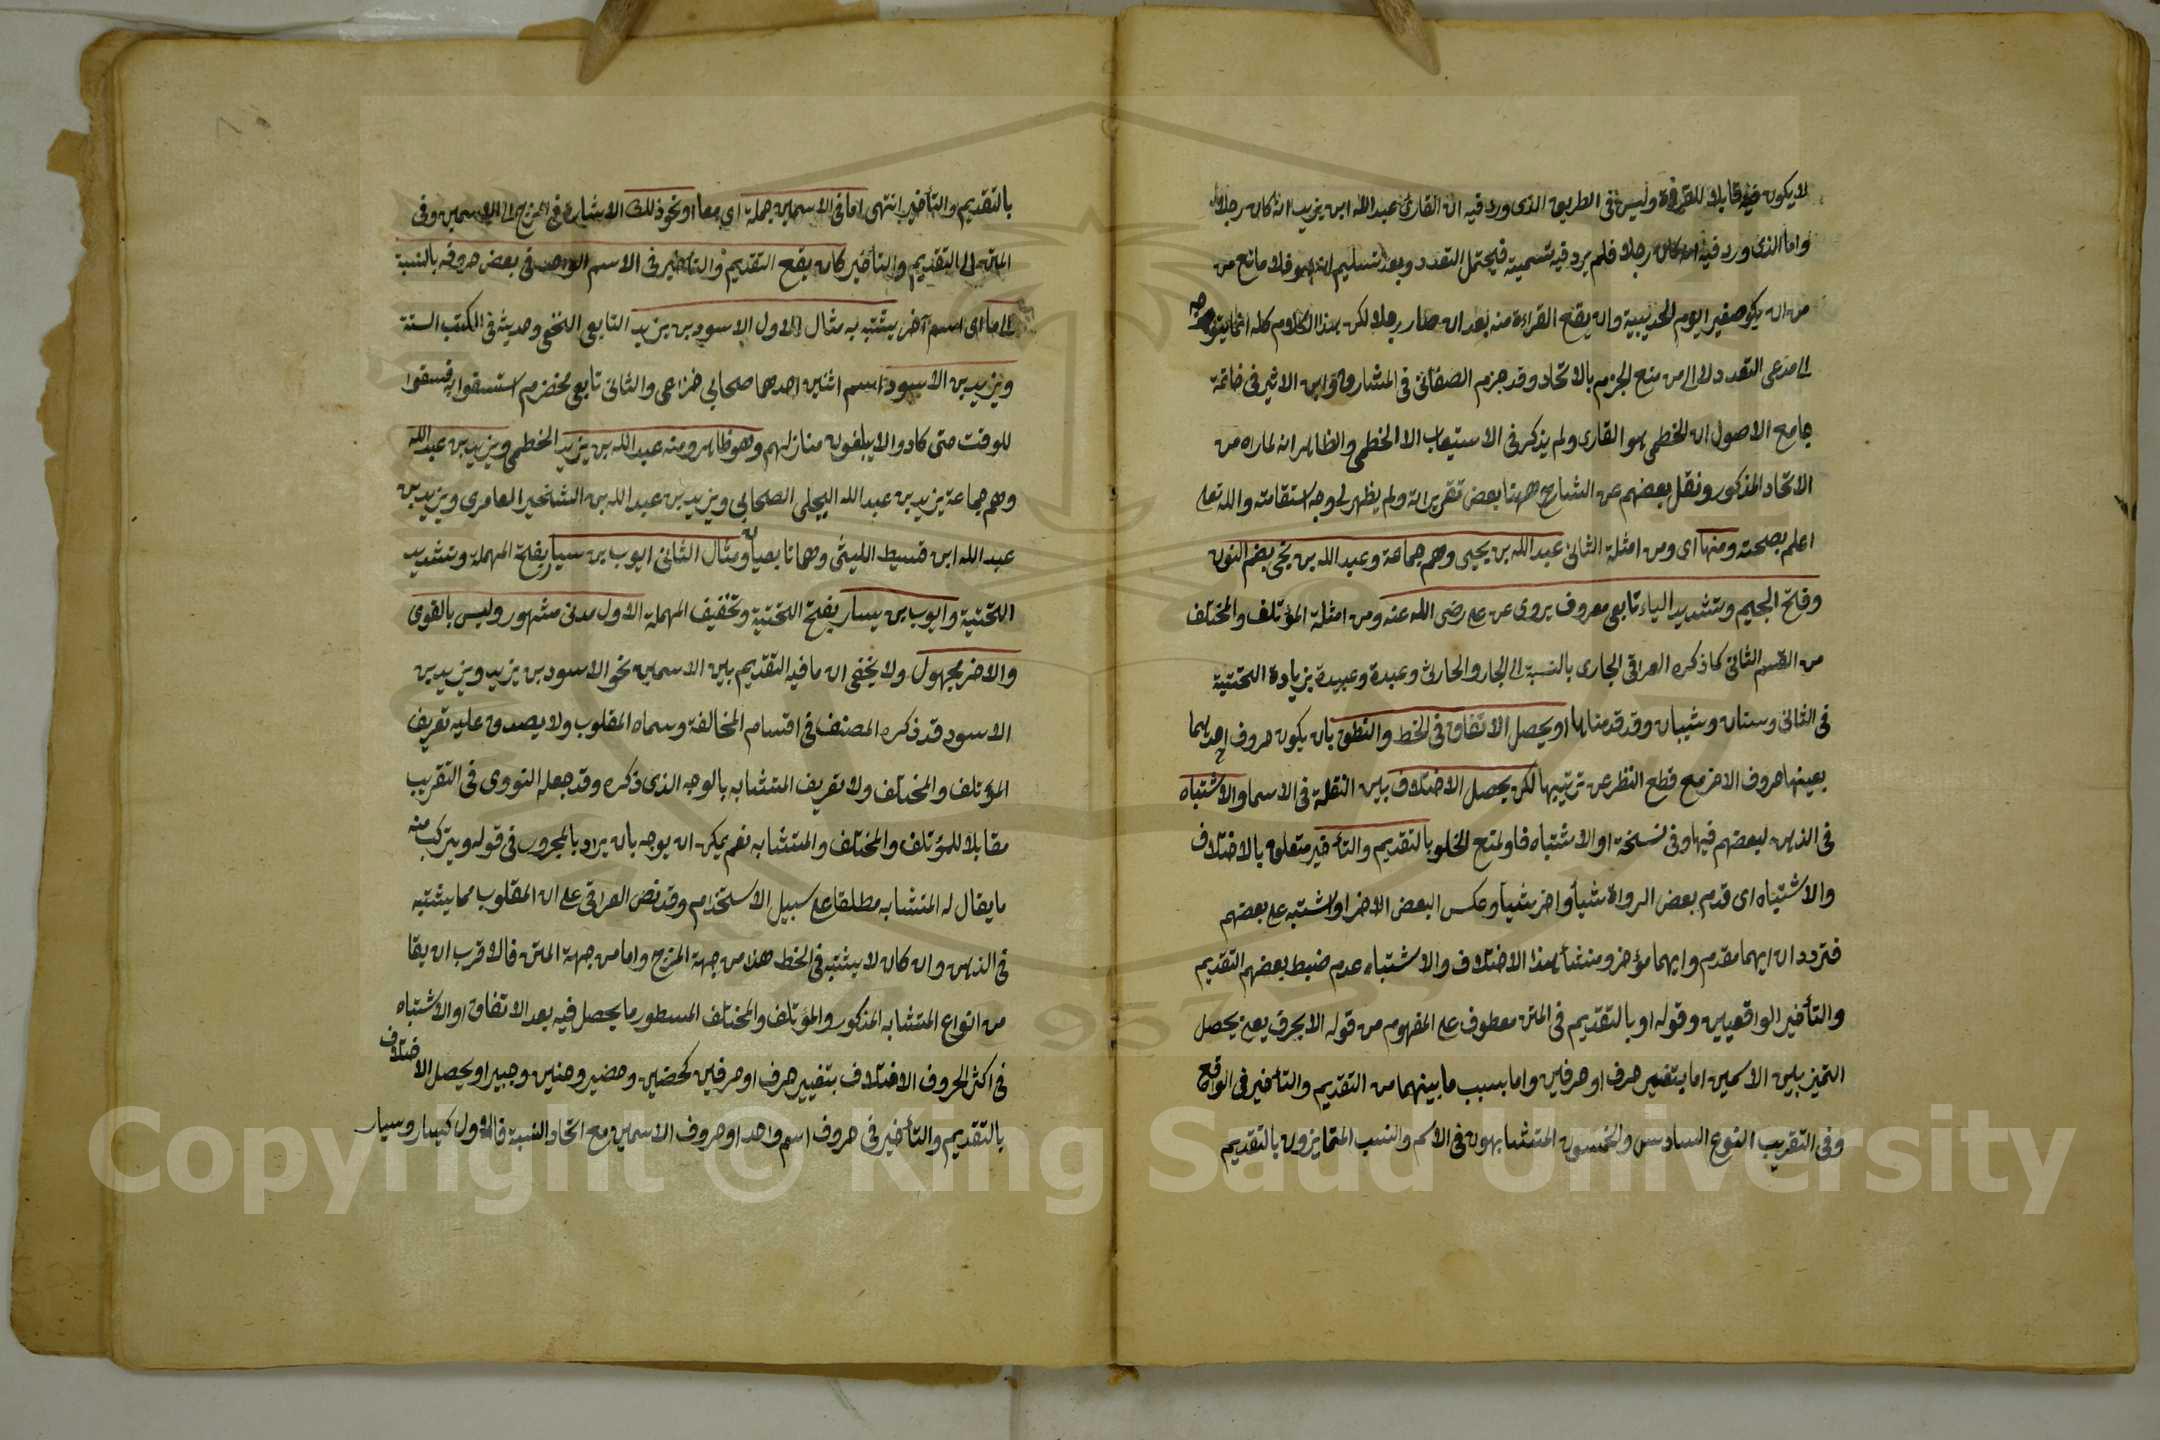 لا يكون فيه قابلا للقراءة وليس في الطريق الذي ورد فيه ان القارئ عبد الله ابن يزيد انه كان رجلا
واما الذي ورد فيه انه كان رجلا فلم يرد فيه تسميته فيحتمل التعدد وبعد تسليم انه هو فلا مانع من
من ان يكو صغيرا يوم الحديبية وان يقع القراءة منه بعد ان صار رجلا لكن هذا الكلام كله انما يتوجه
الى مدعي التعدد لا الى من منع الجزم بالاتحاد وقد جزم الصغاني في المشارق وابن الاثير في خاتمة
جامع الاصول ان الخطمي هو القاري ولم يذكر في الاستيعاب الا الخطمي والظاهر انه لما راه من
الاتحاد المذكور ونقل بعضهم عن الشارح ههنا بعض تقريراته ولم يظهر لي وجه استقامته والله تعا
اعلم بصحته ومنها اى ومن امثلة الثاني عبد الله بن يحيى وهم جماعة وعبد الله بن نجي بضم النون
وفتح الجيم وتشديد الياء تابعي معروف يروى عن علي رضى الله عنه ومن امثلة المؤتلف والمختلف
من القسم الثاني كما ذكره العراقي الجارى بالنسبة الى الجار والحارث وعبدة وعبيدة بزيادة التحتية
في الثانى وسنان وشيبان وقد قدمنالها او يحصل الاتفاق في الخط والنطق بان يكون حروف احديهما
بعينها حروف الاخر مع قطع النظر عن ترتيبها لكن يحصل الاختلاف بين النقلة في الاسما والاشتباه
في الذهن لبعضهم فيها وفي نسخة او الاشتباه فاو لمنع الخلو بالتقديم والتأخير متعلق بالاختلاف
والاشتباه اى قدم بعض الرواة شيأ واخر شيأ وعكس البعض الاخر او اشتبه على بعضهم
فتردد ان ايهما مقدم وايهما مؤخر ومنشأ هذا الاختلاف والاشتباه عدم ضبط بعضهم التقديم
والتأخير الواقعيين وقوله او بالتقديم في المتن معطوف على المفهوم من قوله الا بحرف يعني يحصل
التميز بين الاسمين اما بتغير حرف او حرفين واما بسبب ما بينهما من التقديم والتأخير في الواقع
وفى التقريب النوع السادس والخمسون المتشابهون في الاسم والنسب المتمايزون بالتقديم
بالتقديم والتأخير انتهى اما في الاسمين جملة اي معا او نحو ذلك الاشارة في الشرح الى الاسمين وفى
المتن الى التقديم والتأخير كان يقع التقديم والتأخير في الاسم الواحد في بعض حروفه بالنسبة
الى ما اى اسم آخر يشتبه به مثال الاول الاسود بن يزيد التابعي النخعي وحديثه في الكتب الستة
ويزيد بن الاسود اسم اثنين احدهما صحابي خزاعي والثاني تابعي مخضرم استسقوا به فسقوا
للوقت حتى كادوا لا يبلغون منازلهم وهو ظاهر ومنه عبد الله بن يزيد الخطمي ويزيد بن عبد الله
وهم جماعة يزيد بن عبد الله البجلي الصحابي ويزيد بن عبد الله بن الشخير العامري ويزيد بن
عبد الله ابن قسيط الليثي وهما تابعيان ومثال الثاني ايوب بن سيار بفتح المهملة وتشديد
التحتية وايوب بن يسار بفتح التحتية وتخفيف المهملة الاول مدنى مشهور وليس بالقوى
والاخر مجهول ولا يخفى ان ما فيه التقديم بين الاسمين نحو الاسود بن يزيد ويزيد بن
الاسود قد ذكره المصنف في اقسام المخالفة وسماه المقلوب ولا يصدق عليه تعريف
المؤتلف والمختلف ولا تعريف المتشابه بالوجه الذى ذكره وقد جعله النووى في التقريب
مقابلا للمؤتلف والمختلف والمتشابه نعم يمكن ان يوجه بان يراد بالمجرور في قوله ويتركب منه
ما يقال له المتشابه مطلقا على سبيل الاستخدام وقد نص العراقي على ان المقلوب مما يشتبه
في الذهن وان كان لا يشتبه في الخط هذا من جهة الشرح واما من جهة المتن فالاقرب ان يقا
من انواع المتشابه المذكور والمؤتلف والمختلف المسطور ما يحصل فيه بعد الاتفاق او الاشتباه
في اكثر الحروف الاختلاف بتغيير حرف او حرفين كحضين وحضير وحنين وجبير او يحصل الاختلاف
بالتقديم والتأخير في حروف اسم واحد او حروف الاسمين مع اتحاد النسبة فالاول كيسار وسيار
Copyright © King Saud University